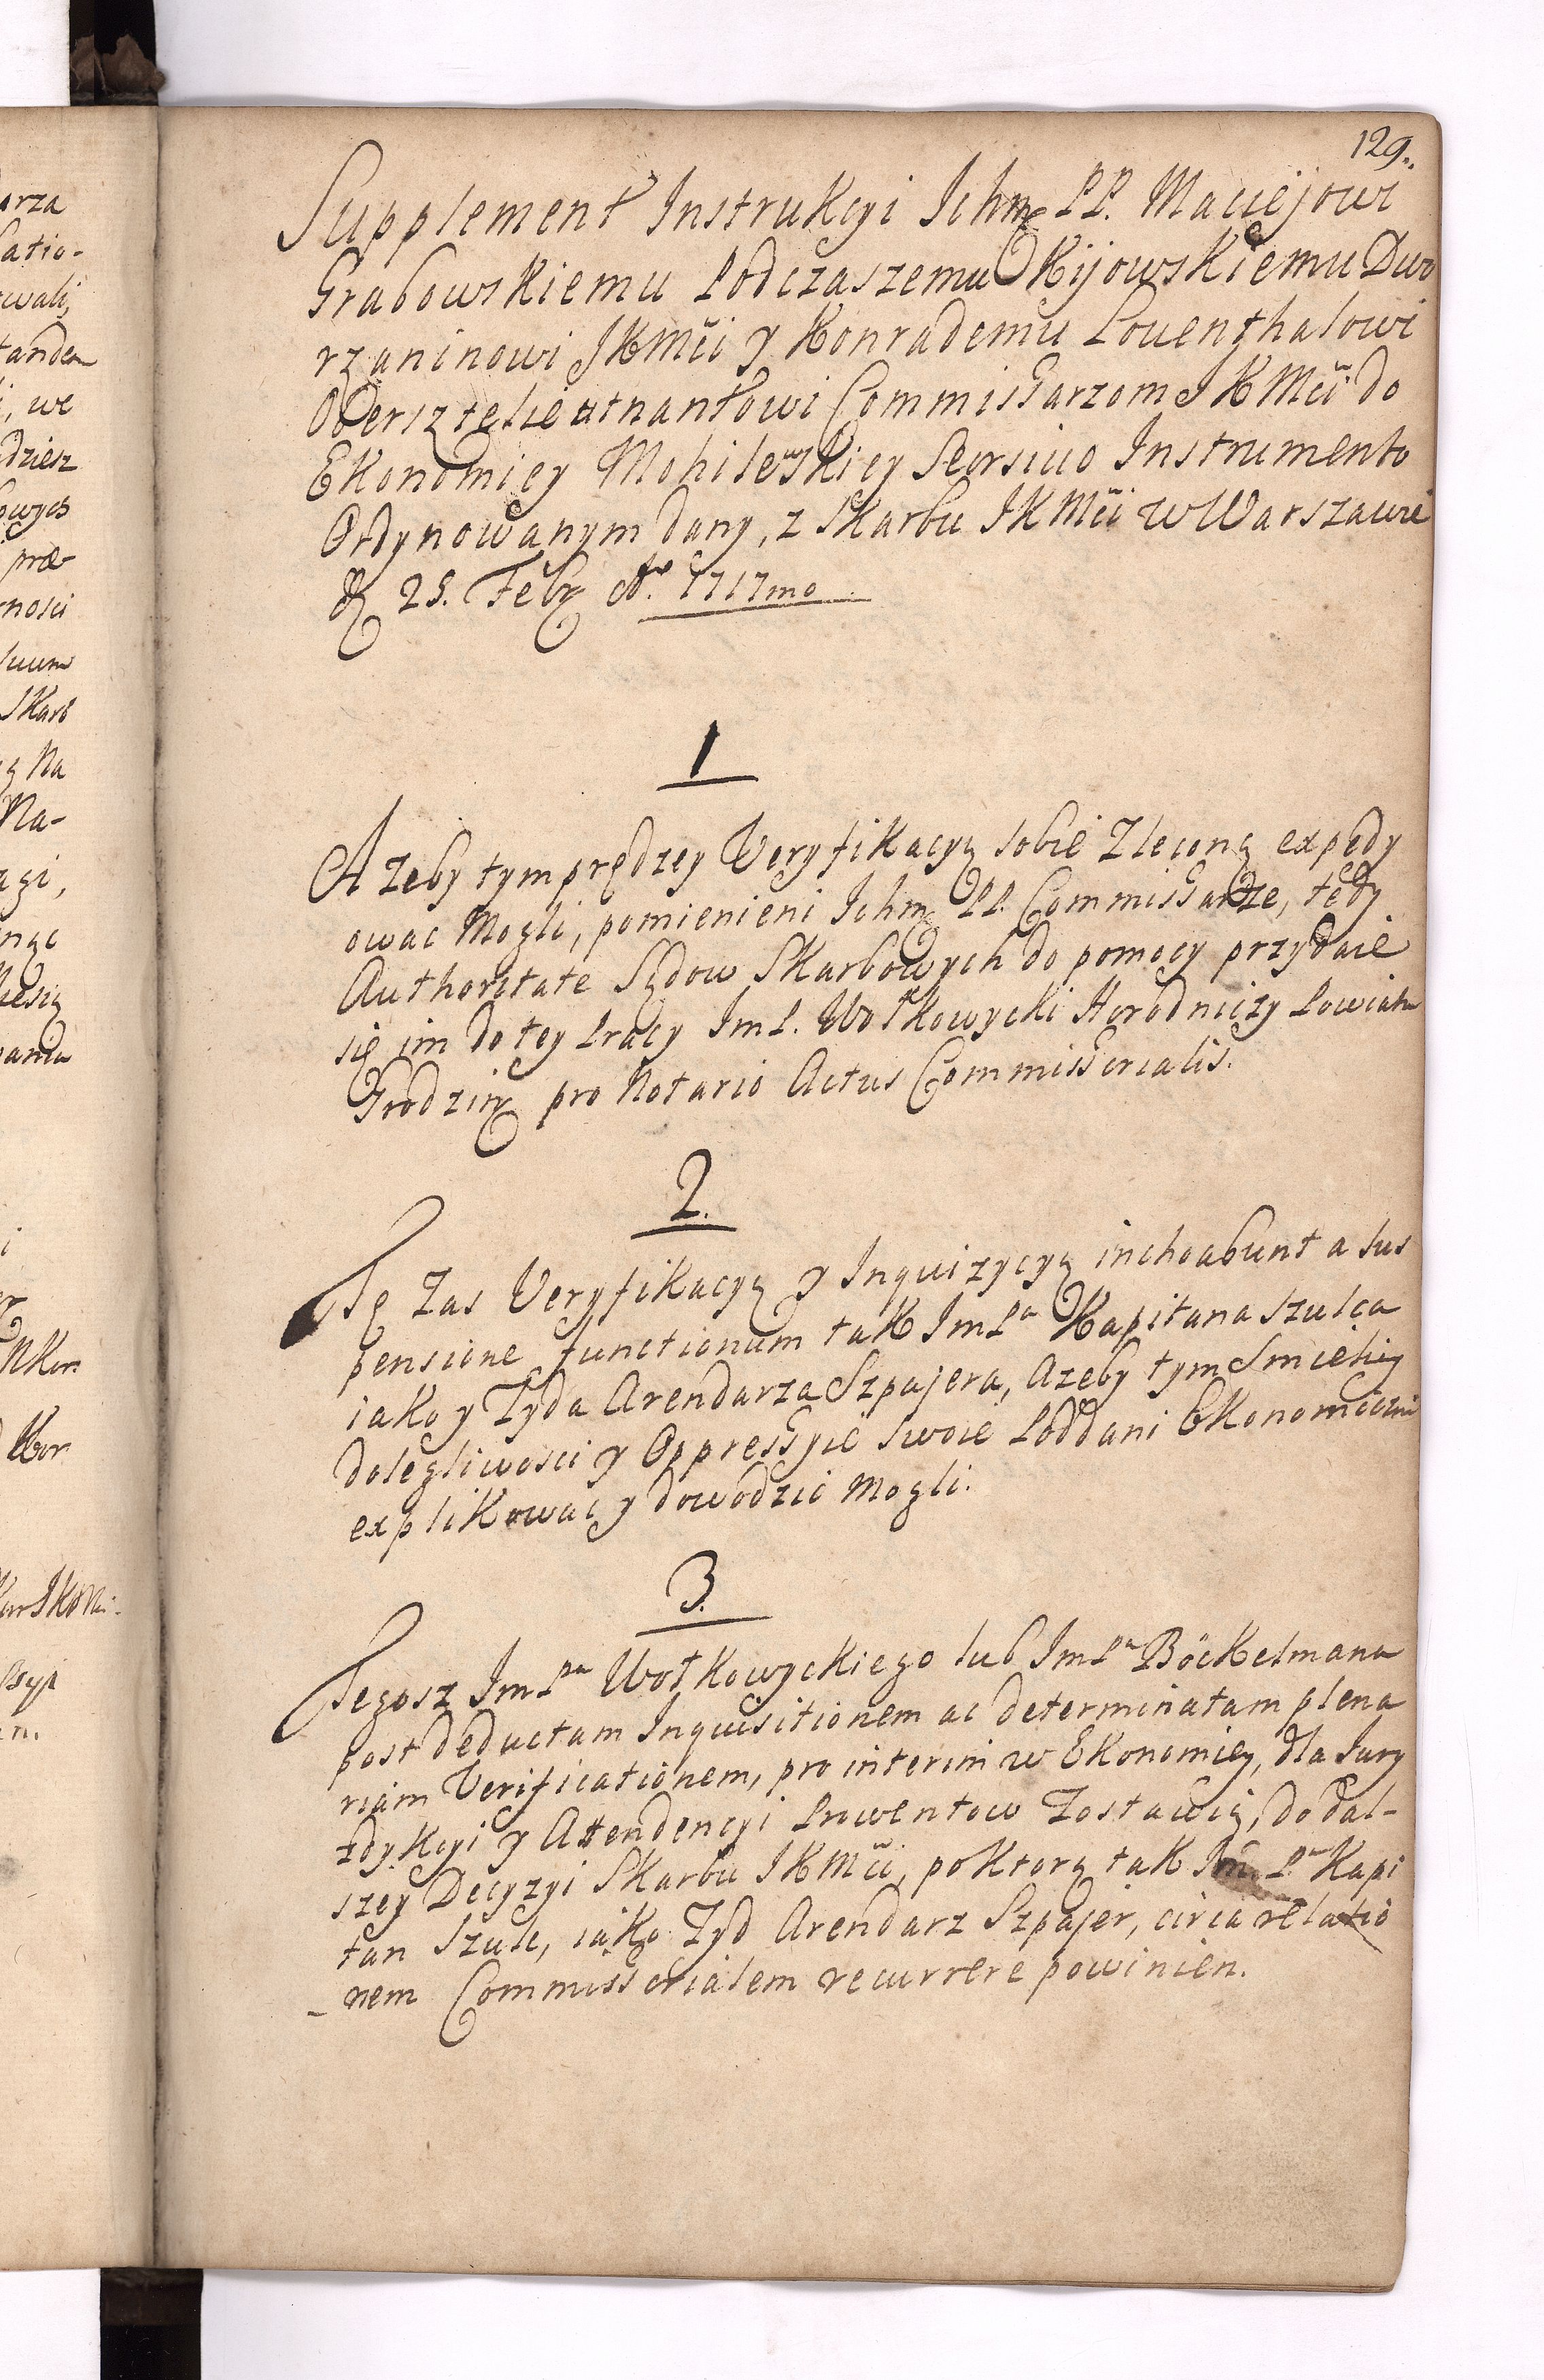 129.
Supplement Instrukcyi Ichm PP. Maciejowi
Grabowskiemu Podczaszemu Kijowskiemu Dwo
rzaninowi JKMći y Konrademu Louenthalowi
Obersztelieutnantowi Commissarzom JKMći do
Ekonomiey Mohilewskiey Seorsivo Instrumento
Ordynowanym dany, z Skarbu JKMći w Warszawie
25. Febr Ao. 1717mo
1
Azeby tym prędzey Veryfikacyą sobie zleconą expedy
owac Mogli, pomienieni Ichm PP. Commissarze, tedy
Authoritate Sądow Skarbowych do pomocy przydaie
się im do tey Pracy ImP. Wołkowycki Horodniczy Powiatu
Grodziń pro Notario Actus Commisserialis.
2.
Tę zas Veryfikacyą y Inquizycyą inchoabunt a sus
pensione functionum tak ImPa Kapitana Szulca
iako y Zyda Arendarza Szpajera, Azeby tym Smieliey
dolegliwosci y Oppressyie swoie Poddani Ekonomiczni
explikowac y dowodzic Mogli.
3.
Tegosz ImPa Wołkowyckiego lub ImPa Böckelmana
post deductam Inquisitionem ac determinatam plena
riam Verificationem, pro interim w Ekonomiey, dla Jury
zdykcyi y Attendencyi Prowentow Zostawią, do dal-
szey Decyzyi Skarbu JKMći, po ktorą tak Im Pan Kapi
tan Szulc, iako Zyd Arendarz Szpajer, circa relatio
-nem Commisserialem recurrere powinien.